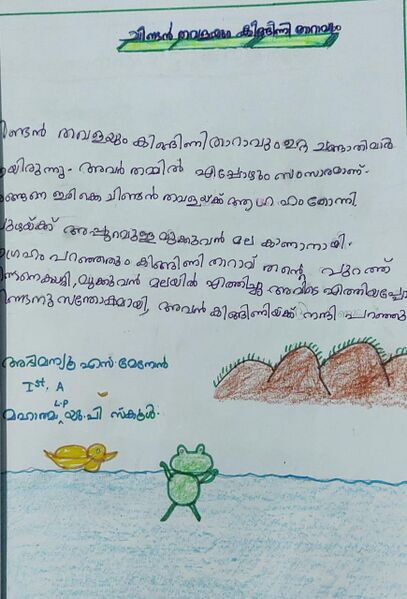 ചിണ്ടൻ തവളയും കിങ്ങിണി താറാവും
ിണ്ടൻ തവളയും കിങ്ങിണിതാറാവും ഉറ്റ ചങ്ങാതിമാർ
യിരുന്നു. അവർ തമ്മിൽ എപ്പോഴും സംസാരമാണ്.
ങ്ങനെ ഇരിക്കെ ചിണ്ടൻ തവളയ്ക്ക് ആഗ്രഹം തോന്നി.
പുഴയ്ക്ക് അപ്പുറമുള്ള മുക്കുവൻ മല കാണാനായി.
ഗ്രഹം പറഞ്ഞതും കിങ്ങിണി താറാവ് തന്റെ പുറത്ത്
മുക്കുവൻ മലയിൽ എത്തിച്ചു അവിടെ എത്തിയപ്പോ
ിണ്ടനു സന്തോഷമായി, അവൻ കിങ്ങിണിയ്ക്ക് നന്ദി പറഞ്ഞു
അഭിമന്യു എസ് മേനോൻ
Ist A
മഹാത്മ L.P യു.പി സ്കൂൾ.